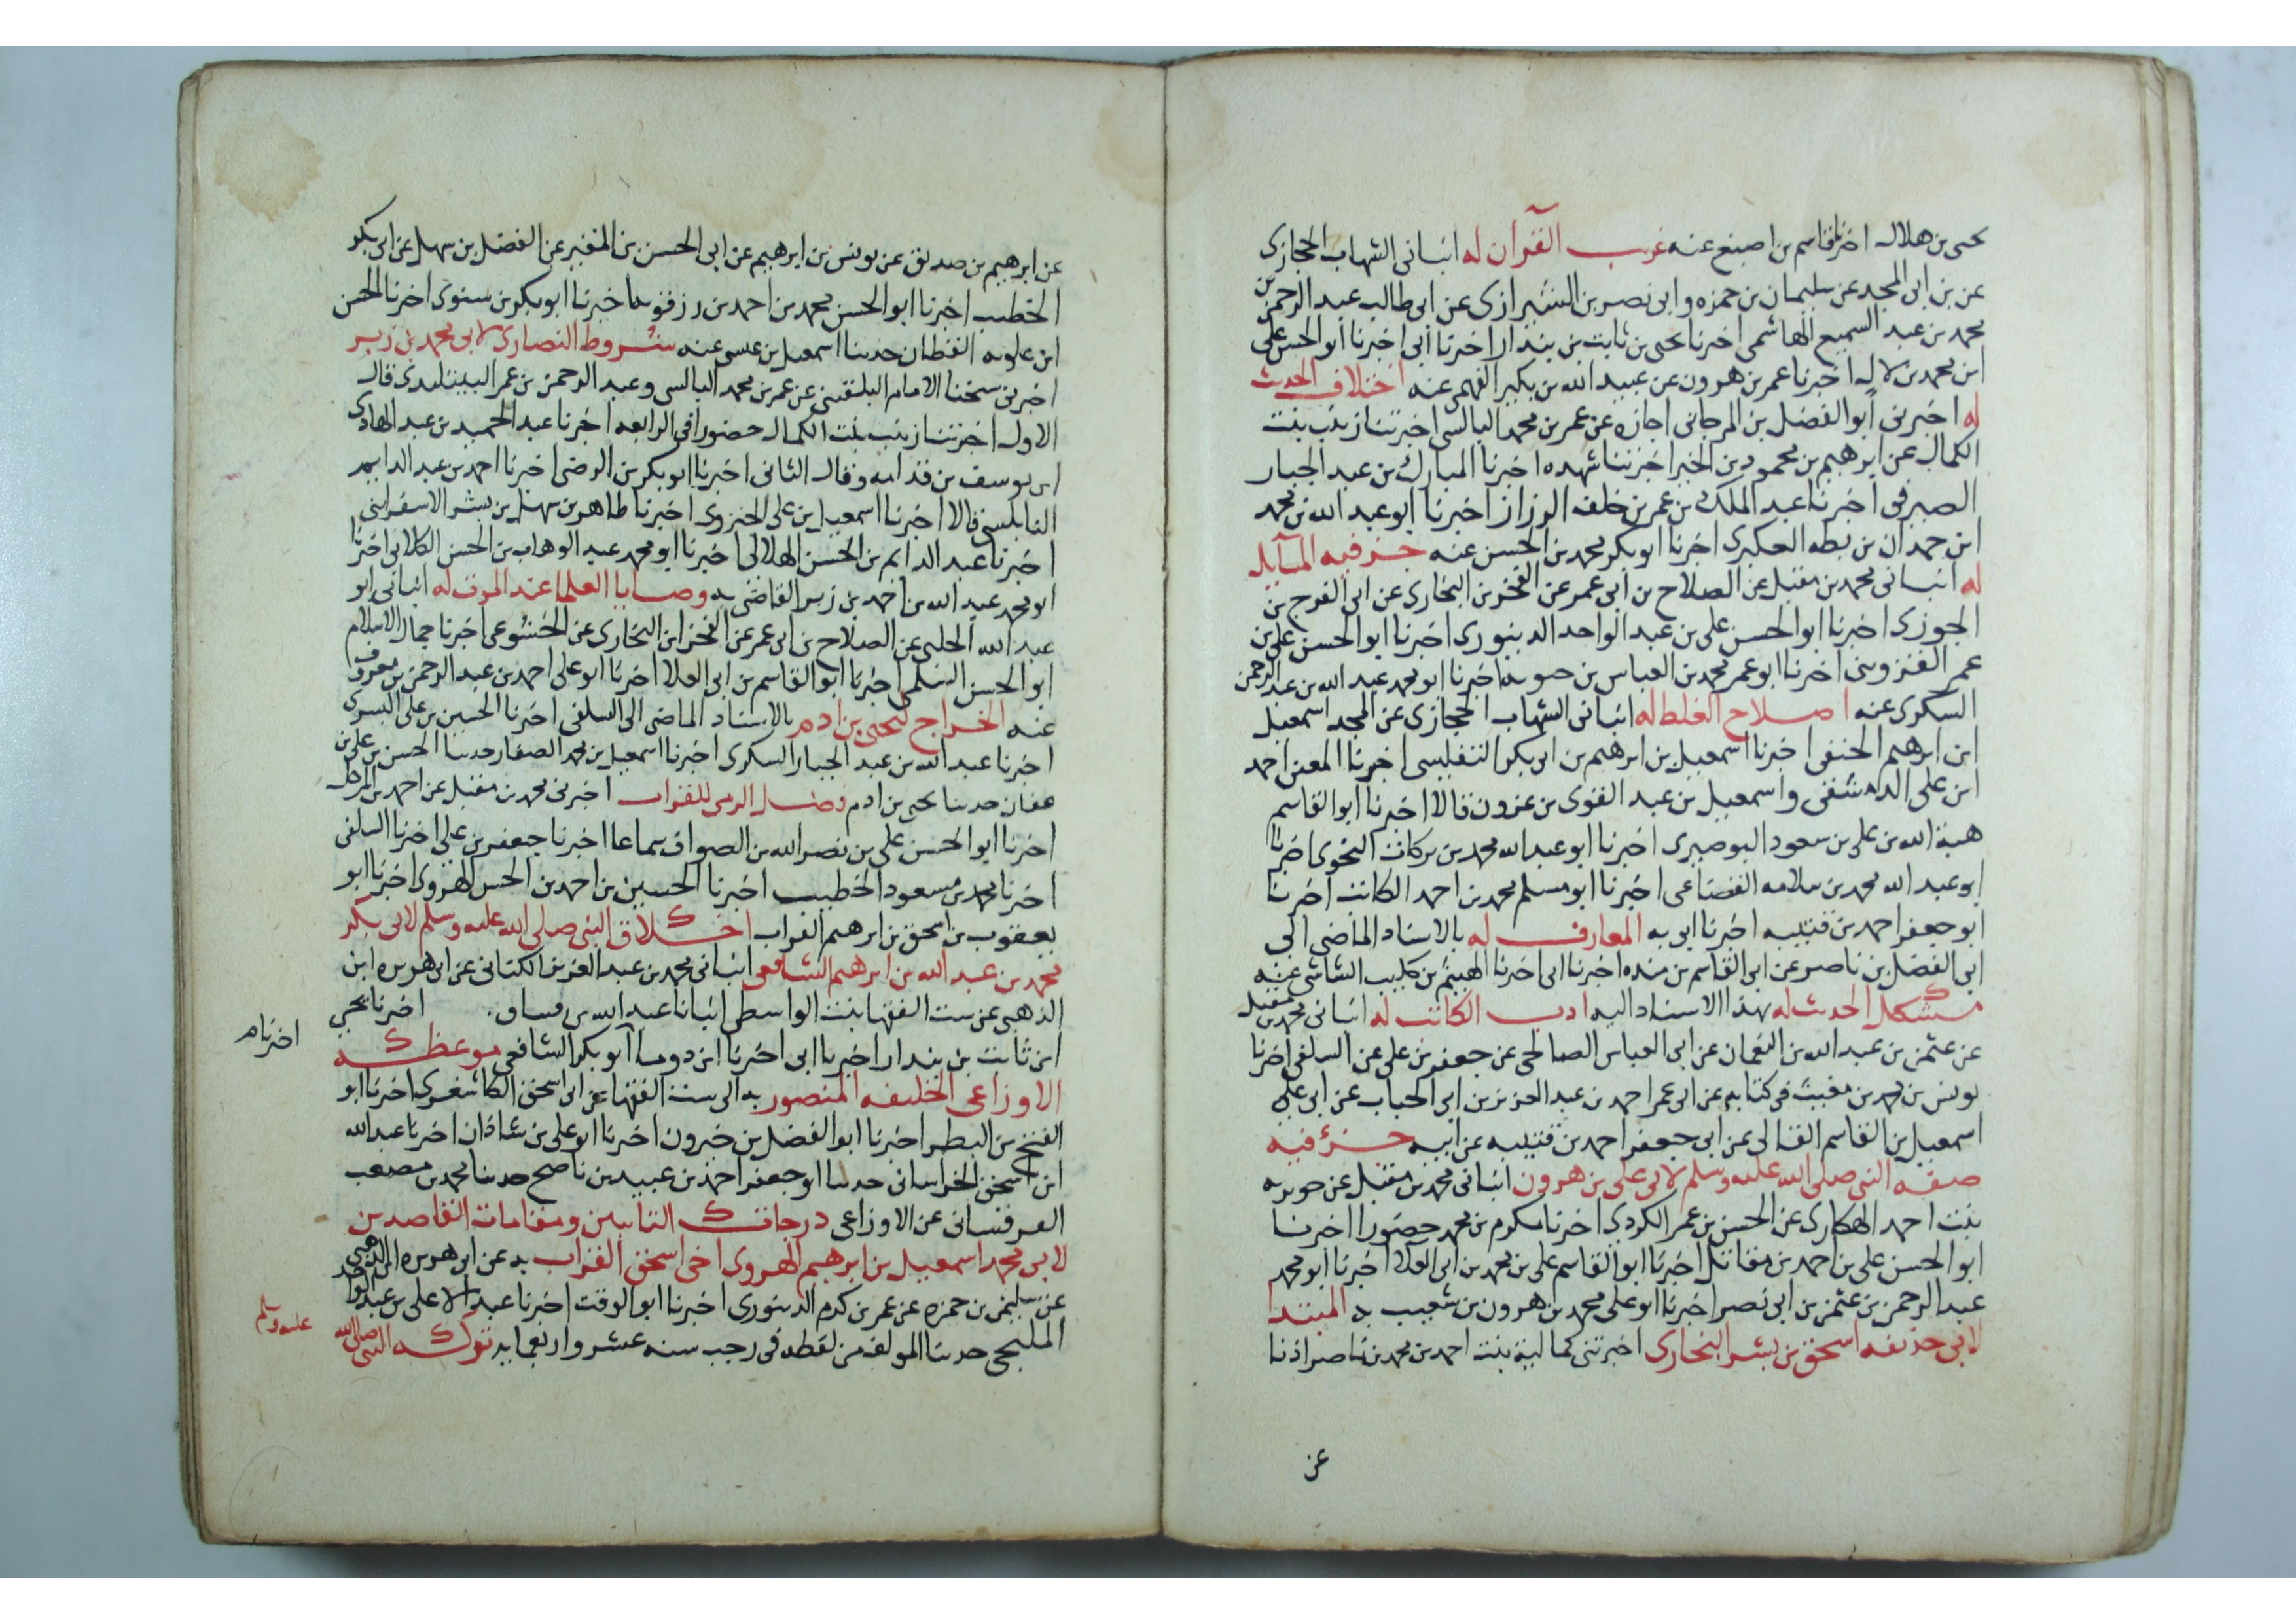 يحيى بن هلال اخبرنا قاسم بن اصبغ عنه غريب القرآن له انبانى الشهاب الحجازى
عن بن ابى المجد عن سليمان بن حمزه وابى نصر بن الشيرازى عن ابى طالب عبد الرحمن بن
محمد بن عبد السميع الهاشمى اخبرنا يحيى بن ثابت بن بندار اخبرنا ابى اخبرنا ابو الحسن على
ابن محمد بن لال اخبرنا عمر بن هرون عن عبيد الله بن بكير الفهمى عنه اختلاف الحديث
له اخبرنى ابو الفضل بن المرجانى اجازه عن عمر بن محمد البالسى اخبرتنا زينب بنت
الكمال عن ابرهيم بن محمود بن الخير اخبرتنا شهده اخبرنا المبارك بن عبد الجبار
الصيرفى اخبرنا عبد الملك بن عمر بن خلف الرزاز اخبرنا ابو عبد الله بن محمد
ابن حمدان بن بطه العكبرى اخبرنا ابو بكر محمد بن الحسن عنه جزء فيه المسآيل
له انبانى محمد بن مقبل عن الصلاح بن ابى عمر عن الفخر بن البخارى عن ابى الفرج بن
الجوزى اخبرنا ابو الحسن على بن عبد الواحد الدينورى اخبرنا ابو الحسن على بن
عمر القزوينى اخبرنا ابو عمر محمد بن العباس بن حيويه اخبرنا ابو محمد عبيد الله بن عبد الرحمن
السكرى عنه اصلاح الغلط له انبانى الشهاب الحجازى عن المجد اسمعيل
ابن ابرهيم الحنفى اخبرنا اسمعيل بن ابرهيم بن ابى بكر التفليسى اخبرنا المعين احمد
ابن على الدمشقى واسمعيل بن عبد القوى بن عزون قالا اخبرنا ابو القاسم
هبة الله بن على بن سعود البوصيرى اخبرنا ابو عبد الله محمد بن بركات النحوى اخبرنا
ابو عبد الله محمد بن سلامه القضاعى اخبرنا ابو مسلم محمد بن احمد الكاتب اخبرنا
ابو جعفر احمد بن قتيبه اخبرنا ابى به المعارف له بالاسناد الماضى الى
ابى الفضل بن ناصر عن ابى القاسم بن منده اخبرنا ابى اخبرنا الهيثم بن كليب الشاشى عنه
مشكل الحديث له بهذا الاسناد اليه ادب الكاتب له انبانى محمد بن مقبل
عن عثمن بن عبد الله بن النعمان عن ابى العباس الصالحى عن جعفر بن على عن السلفى اخبرنا
يونس بن محمد بن مغيث فى كتابه عن ابى عمر احمد بن عبد العزيز بن ابى الحباب عن ابى على
اسمعيل بن القاسم القالى عن ابى جعفر احمد بن قتيبه عن ابيه جزء فيه
صفه النبى صلى الله عليه وسلم لابى على بن هرون انبانى محمد بن مقبل عن جويريه
بنت احمد الهكارى عن الحسن بن عمر الكردى اخبرنا مكرم بن محمد حضورا اخبرنا
ابو الحسن على بن احمد بن مقاتل اخبرنا ابو القاسم على بن محمد بن ابى العلا اخبرنا ابو محمد
عبد الرحمن بن عثمن بن ابى نصر اخبرنا ابو على محمد بن هرون بن شعيب به المبتدا
لابى حذيفه اسحق بن بشر البخارى اخبرتنى كمالية بنت احمد بن محمد بن ناصر اذنا
عن
عن ابرهيم بن صديق عن يونس بن ابرهيم عن ابى الحسن بن المقير عن الفضل بن سهل عن ابى بكر
الخطيب اخبرنا ابو الحسن محمد بن احمد بن رزقويه اخبرنا ابو بكر بن سنوى اخبرنا الحسن
ابن علويه القطان حدثنا اسمعيل بن عيسى عنه شروط النصارى لابى محمد بن زبر
اخبرنى شيخنا الامام البلقينى عن عمر بن محمد البالسى وعبد الرحمن بن عمر البيتليدى قال
الاول اخبرتنا زينب بنت الكمال حضورا فى الرابعه اخبرنا عبد الحميد بن عبد الهادى
ابن يوسف بن قدامه وقال الثانى اخبرنا ابو بكر بن الرضى اخبرنا احمد بن عبد الدايم
النابلسى قالا اخبرنا اسمعيل بن على الجنزوى اخبرنا طاهر بن سهل بن بشر الاسفراينى
اخبرنا عبد الدائم بن الحسن الهلالى اخبرنا ابو محمد عبد الوهاب بن الحسن الكلابى اخبرنا
ابو محمد عبد الله بن احمد بن زبر القاضى به وصايا العلما عند الموت له انبانى ابو
عبد الله الحلبى عن الصلاح بن ابى عمر عن الفخر ابن البخارى عن الخشوعى اخبرنا جمال الاسلام
ابو الحسن السلمى اخبرنا ابو القاسم بن ابى العلا اخبرنا ابو على احمد بن عبد الرحمن بن معروف
عنه الخراج ليحيى بن ادم بالاسناد الماضى الى السلفى اخبرنا الحسين بن على البسرى
اخبرنا عبد الله بن عبد الجبار السكرى اخبرنا اسمعيل بن محمد الصفار حدثنا الحسن بن على بن
عفان حدثنا يحيى بن ادم وفضل الرمى للقراب اخبرنى محمد بن مقبل عن احمد بن المرحل
اخبرنا ابو الحسن على بن نصر الله بن الصواف سماعا اخبرنا جعفر بن على اخبرنا السلفى
اخبرنا محمد بن مسعود الخطيب اخبرنا الحسين بن احمد بن الحسن الهروى اخبرنا ابو
يعقوب بن اسحق بن ابرهيم القراب اخلاق النبى صلى الله عليه وسلم لابى بكر
محمد بن عبد الله بن ابرهيم الشافعى انبانى محمد بن عبد العزيز الكتانى عن ابى هريره ابن
الذهبى عن ست الفقها بنت الواسطى انبانا عبد الله بن اخبرنا يحيى
ابن ثابت بن بندار اخبرنا ابى اخبرنا ابن دوما ابو بكر الشافعى موعظه
اخبرنا م
الاوزاعى الخليفه المنصور به الى ست الفقها عن ابى اسحق الكاشغرى اخبرنا ابو
الفتح بن البطى اخبرنا ابو الفضل بن خيرون اخبرنا ابو على بن شاذان اخبرنا عبد الله
ابن اسحق الخراسانى حدثنا ابو جعفر احمد بن عبيد بن ناصح حدثنا محمد بن مصعب
القرقسانى عن الاوزاعى درجات التايبين ومقامات القاصدين
لابى محمد اسمعيل بن ابرهيم الهروى اخى اسحق القراب به عن ابى هريره بن الذهبى
عن سليمن بن حمزه عن عمر بن كرم الدينورى اخبرنا ابو الوقت اخبرنا عبد الاعلى بن عبد الواحد
المليحى حدثنا المولف من لفظه فى رجب سنه عشر واربعمايه تركه النبى صلى الله
عليه وسلم